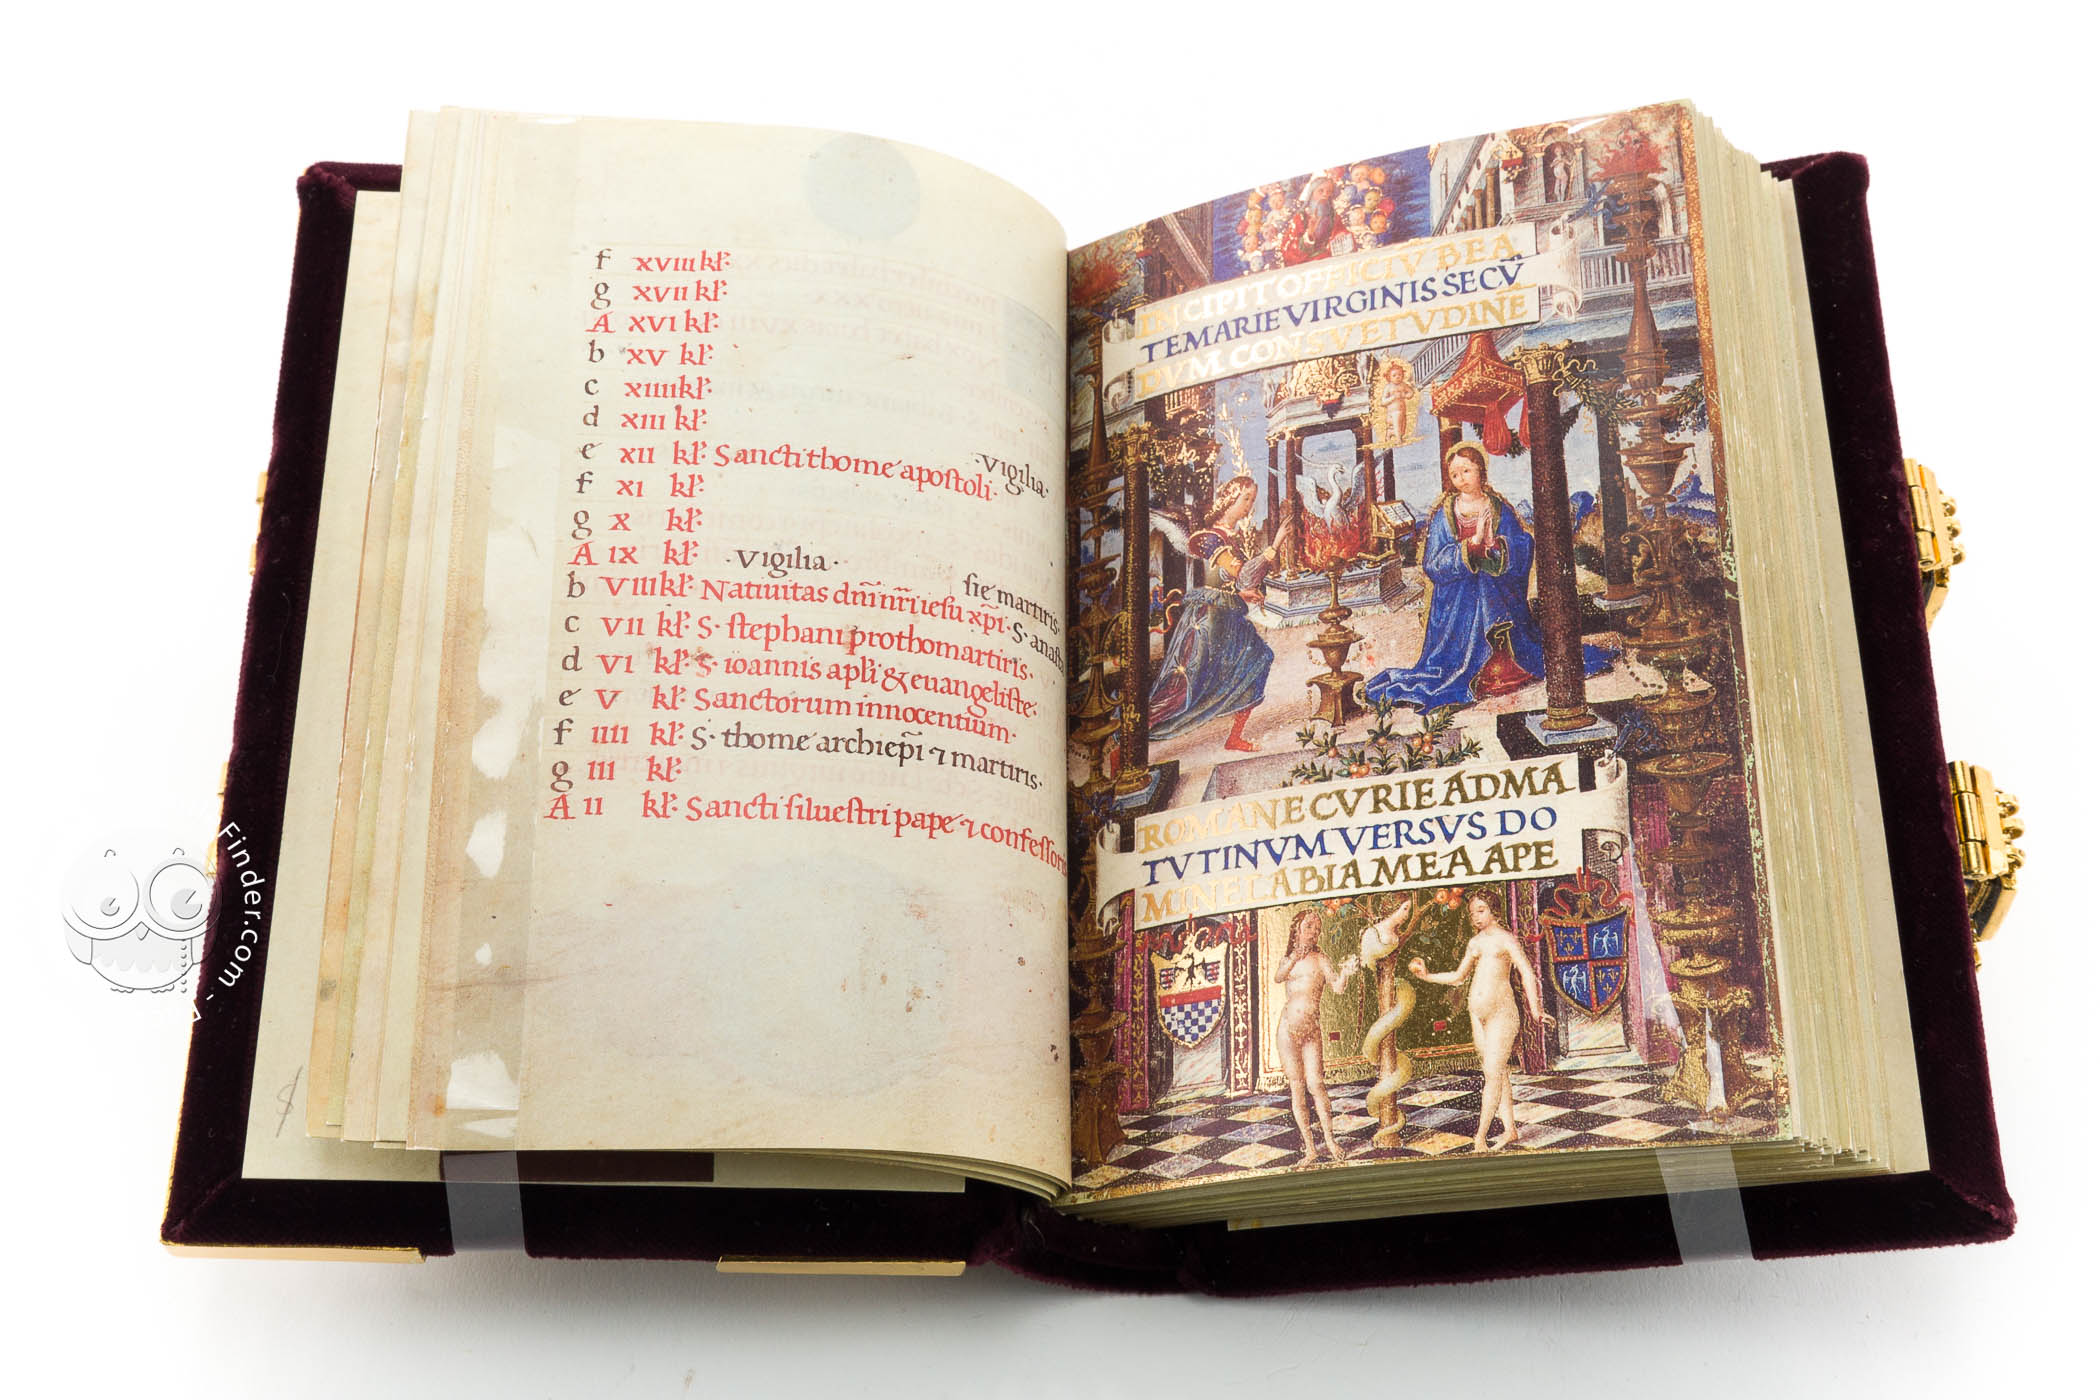 f xviii kl̃·
g xvii kl̃·
A xvi kl̃·
b xv kl̃·
c xiiii kl̃·
d xiii kl̃·
·Vigilia·
e xii kl̃· Sancti thome apostoli·
f xi kl̃·
g x kl̃·
A ix kl̃· ·Vigilia·
sie martiris·
b viii kl̃· Natiuitas dñi nr̃i iesu xp̃i· S· anasta
c vii kl̃· S· stephani prothomartiris·
d vi kl̃· S· ioannis apl̃i & euangeliste·
e v kl̃· Sanctorum innocentium·
f iiii kl̃· S· thome archiep̃i ⁊ martiris·
g iii kl̃·
A ii kl̃· Sancti siluestri pape ⁊ confessoris
INCIPIT OFFICIV BEA
TE MARIE VIRGINIS SECV̄
DVM CONSVETVDINĒ
ROMANE CVRIE AD MA
TVTINVM VERSVS DO
MINE LABIA MEA APE
Finder.com